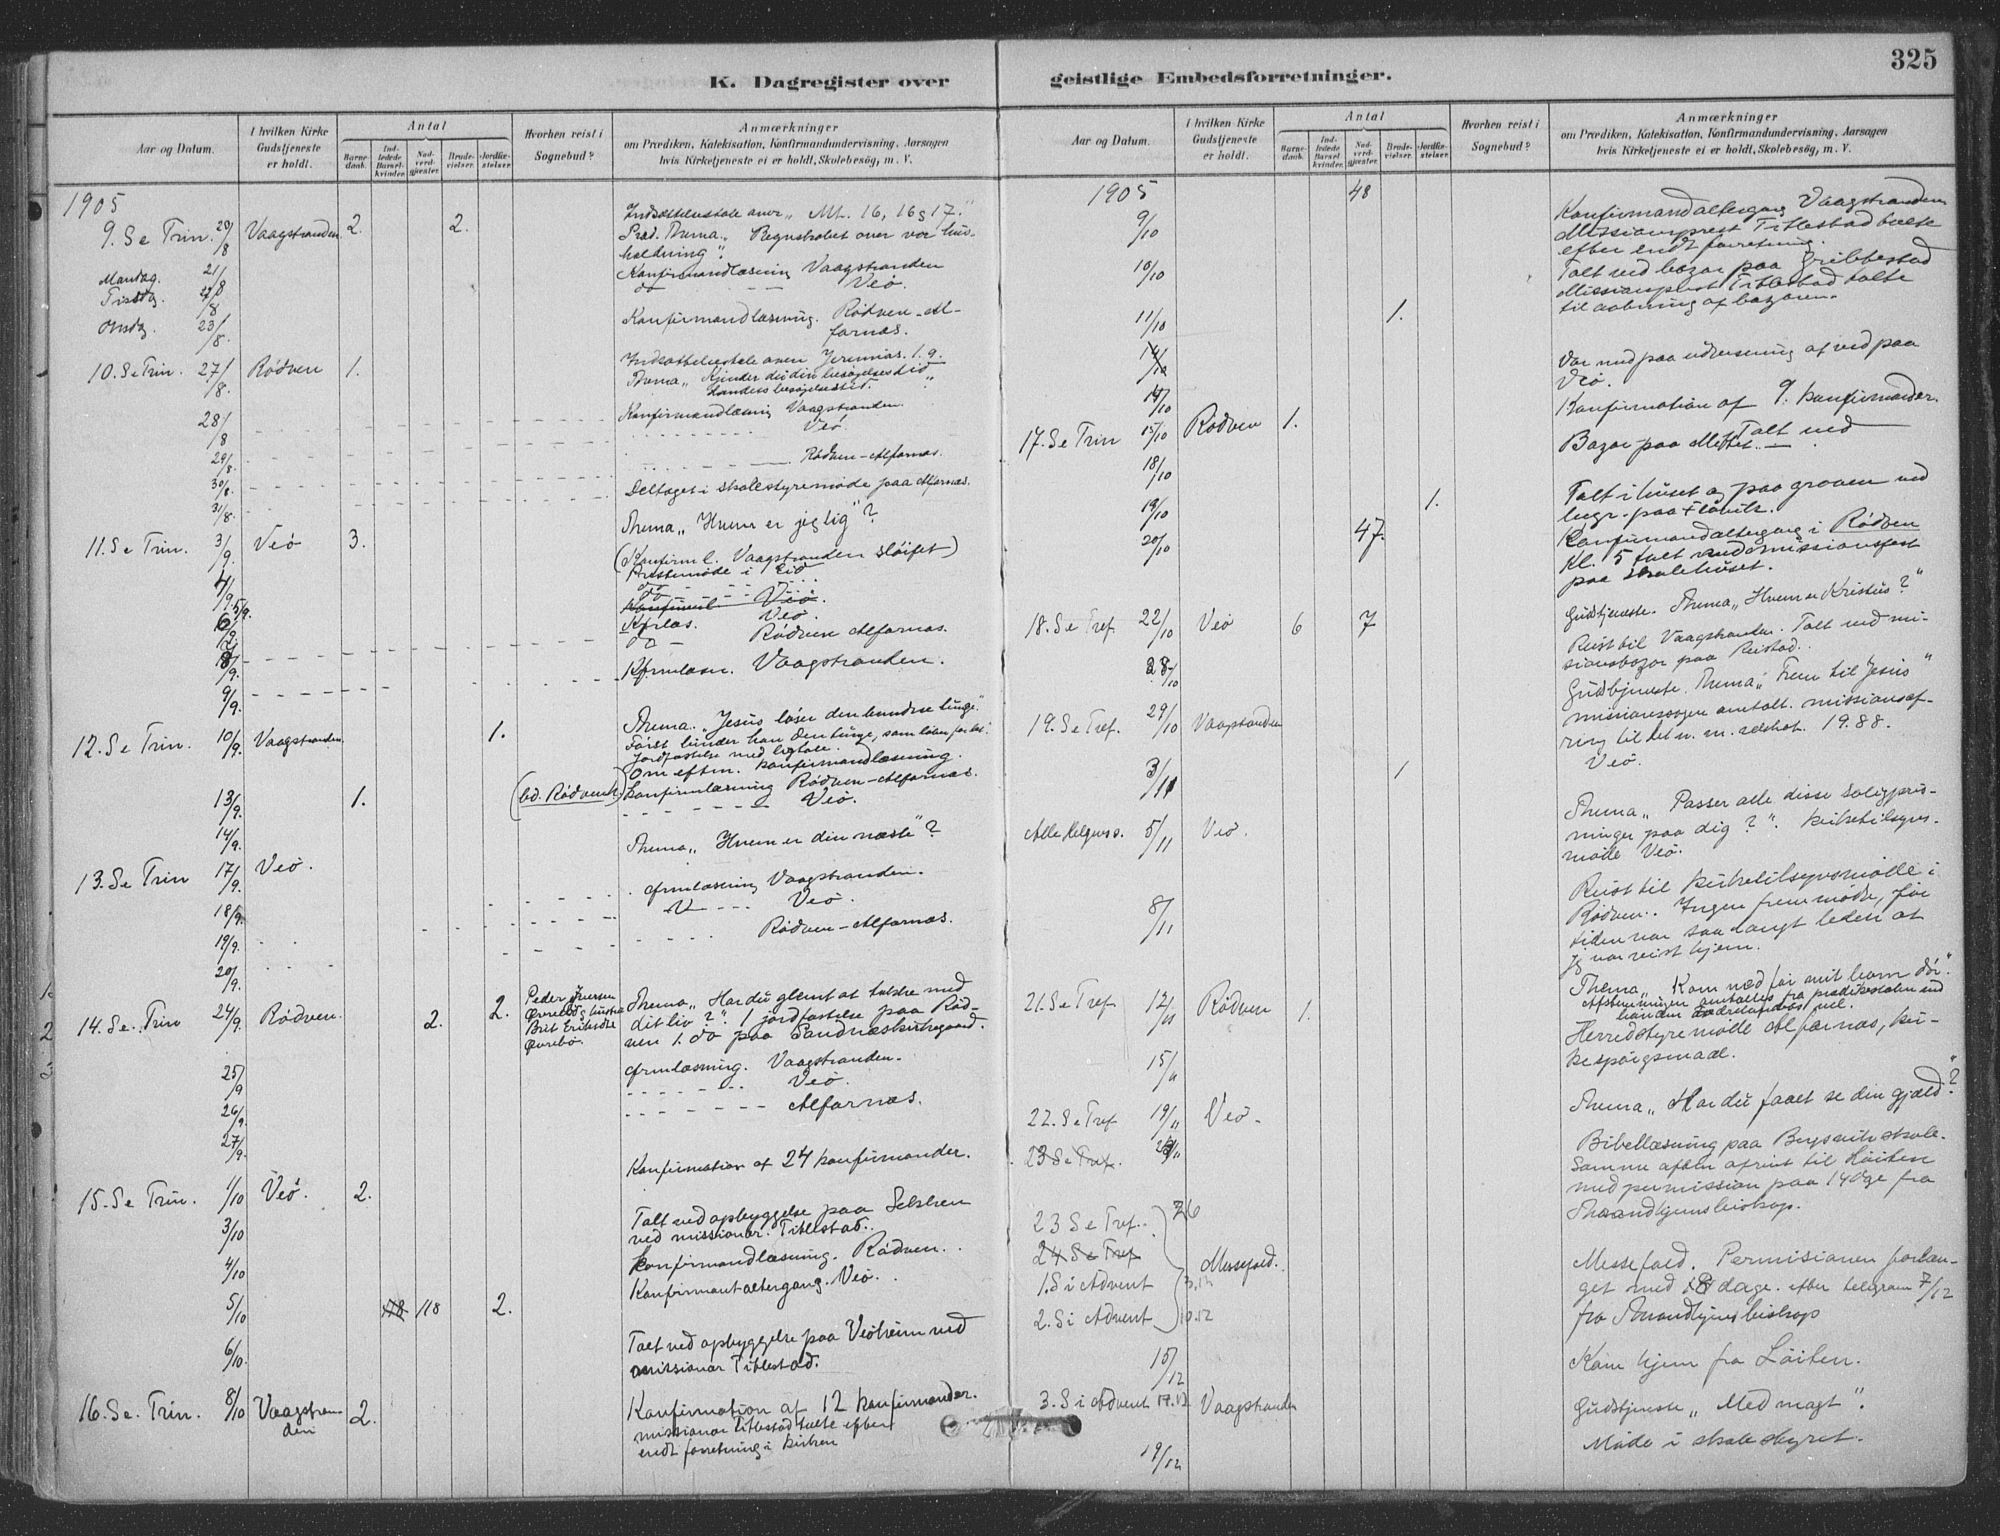 325
K. Dagregister over
geistlige Embedsforretninger.
Aar og Datum.
I hvilken Kirke Gudstjeneste er holdt.
Antal
Barnedaab.
Indledede Barselkvinder.
Nadverdgjæster.
Brudevielser.
Jordfæstelser.
Hvorhen reist i Sognebud?
Anmærkninger
om Prædiken, Katekisation, Konfirmandundervisning, Aarsagen
hvis Kirketjeneste ei er holdt, Skolebesøg, m. V.
1905
Indsættelsestale over „Mt. 16, 16 g 17."
9. S e Trin. 20/8 Vaagstranden 2. 2. Præd. Thema „Regnskabet over vor hus-
holdning".
Mandag 21/8 Konfirmandlæsning Vaagstranden
Tirsdg. 22/8 do - - - Veö.
Onsdg. 23/8. Konfirmandlæsning. Rödven - Al-
farnæs.
10. S e Trin. 27/8. Rödven 1. Indsættelsestale over Jeremias. 1. 9.
Thema „Kjender du din besögelsestid
Landets besögelsestid."
28/8 Konfirmandlæsning Vaagstranden.
Veö.
29/8. Rödven - Alfarnæs.
30/8. Deltaget i skolestyremöde paa Alfarnæs.
31/8.
Thema „Hvem er jeg lig"?
11. S e Trin. 3/9. Veö 3. (Konfirm l. Vaagstranden slöifet)
4/9. Prestemöde i Eid
5/9. do - - -
Konfirml Veö.
6/9. Kfrlæs. Veö.
7/9. do Rödven Alfarnæs.
8/9. Kfrmlæsn. Vaagstranden.
9/9.
Thema. „Jesus löser den bundne tunge."
12. S e Trin. 10/9. Vaagstranden. 1. Först binder han den tunge, som
Jordfæstelse med ligtale.
Om eftm. konfirmandlæsning.
13/9. 1. (bd. Rödven) Konfirmlæsning Rödven - Alfarnæs.
14/9. - - - - Veö.
Thema „Hvem er din næste"?
13. S e Trin 17/9. Veö.
18/9. cfrmlæsning Vaagstranden.
19/9. - - - Veö.
20/9. Rödven - Alfarnæs.
14. S e. Trin 24/9. Rödven. 2. 2. Peder Iversen Övrebö g hustru Brit Eriksdtr Övrebö. Thema „Har du glemt at takke med
dit liv?". 1 jordfæstelse paa Röd-
ven 1. do paa Sandnæs kirkegaard.
25/9 cfrmlæsning. Vaagstranden.
26/9. - - - - Veö.
27/9. - - - - Alfarnæs.
Konfirmation af 24 konfirmander.
15. S e Trin. 1/10 Veö. 2.
3/10 Talt ved opbyggelse paa Sekken
ved missionær. Titlestad.
4/10 konfirmandlæsning. Rödven.
5/10 118 118 2. Konfirmantaltergang. Veö.
6/10. Talt ved opbyggelse paa Veöheim ved
missionær Titlestad.
16. S e. Trin. 8/10 Vaagstranden 2. Konfirmation af 12 konfirmander.
missionær Titlestad talte efter
endt forretning i kirken
Aar og Datum.
I hvilken Kirke Gudstjeneste er holdt.
Antal
Barnedaab.
Indledede Barselkvinder.
Nadverdgjæster.
Brudevielser.
Jordfæstelser.
Hvorhen reist i Sognebud?
Anmærkninger
om Prædiken, Katekisation, Konfirmandundervisning, Aarsagen
hvis Kirketjeneste ei er holdt, Skolebesøg, m. V.
1905
9/10 48 Konfirmandaltergang Vaagstranden
Missionsprest Titlestad talte
efter endt forretning.
10/10 Talt ved bazar paa Gribbestad
Missionsprest Titlestad talte
til aabning af bazaren.
11/10 1.
14/10 Var med paa udvisning af ved paa
Veö.
14/10
17. S e Trin 15/10 Rödven 1. Konfirmation af 9. konfirmander.
18/10 Bazar paa Mittet. Talt ved
19/10 1. Talt i huset og paa graven ved
begr. paa Flövik.
20/10 47. Konfirmandaltergang i Rödven
Kl. 5 talt ved missionsfest
paa skolehuset.
18. S e Tref 22/10 Veö 6 7 Gudstjeneste. Thema „Hvem er Kristus?"
28/10 Reist til Vaagstranden. Talt ved mi-
sionsbazar paa Reistad.
19. S e Tref. 29/10 Vaagstranden Gudstjeneste. Thema „Frem til Jesus"
missionssagen omtalt. missionsof-
ring til det n. m. selskab. 19.88.
3/11 1 Veö.
Alle Helgens s. 5/11 Veö. Thema „Passer alle disse saligpris-
ninger paa dig?". Kirketilsyns-
möde Veö.
8/11 Reist til kirketilsynsmöde i
Rödven. Ingen fremmödte, för
tiden var saa langt leden at
jeg var reist hjem.
21. S e Tref 12/11 Rödven 1. Thema „Kom ned för mit barn dör".
Afstemningen omtaltes fra prædikestolen ved
15/11 Herredstyremöde Alfarnæs, kir-
kespörgsmaal.
22. S e Tref 19/11 Veö. Thema „Har du faaet se din gjæld?"
23 S e Tref. Bibellæsning paa skole.
Samme aften afreist til Löiten
med permission paa 14 dge fra
Throndhjems biskop.
23 S e Tref. 26
24 S e Tref
1. S i Advent 3.12 Messefald. Messefald. Permisionen forlæn-
get med 8 dage. efter telegram 7/12
2. S i Advent 10.12 fra Throndhjems biskop
15/12 Kom hjem fra Löiten.
3. S i Advent 17.12 Vaagstranden Gudstjeneste „Med magt".
19/12 Möde i skolestyret.